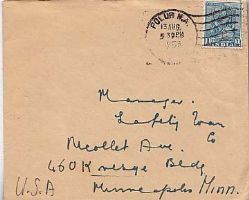 POLUR N.A.
13 AUG.
5 30 PM
INDIA
Manager.
Lafely Loan
Co
Nicollet Ave.
460 Kresge Bldg
U.S.A Minneapolis Minn.